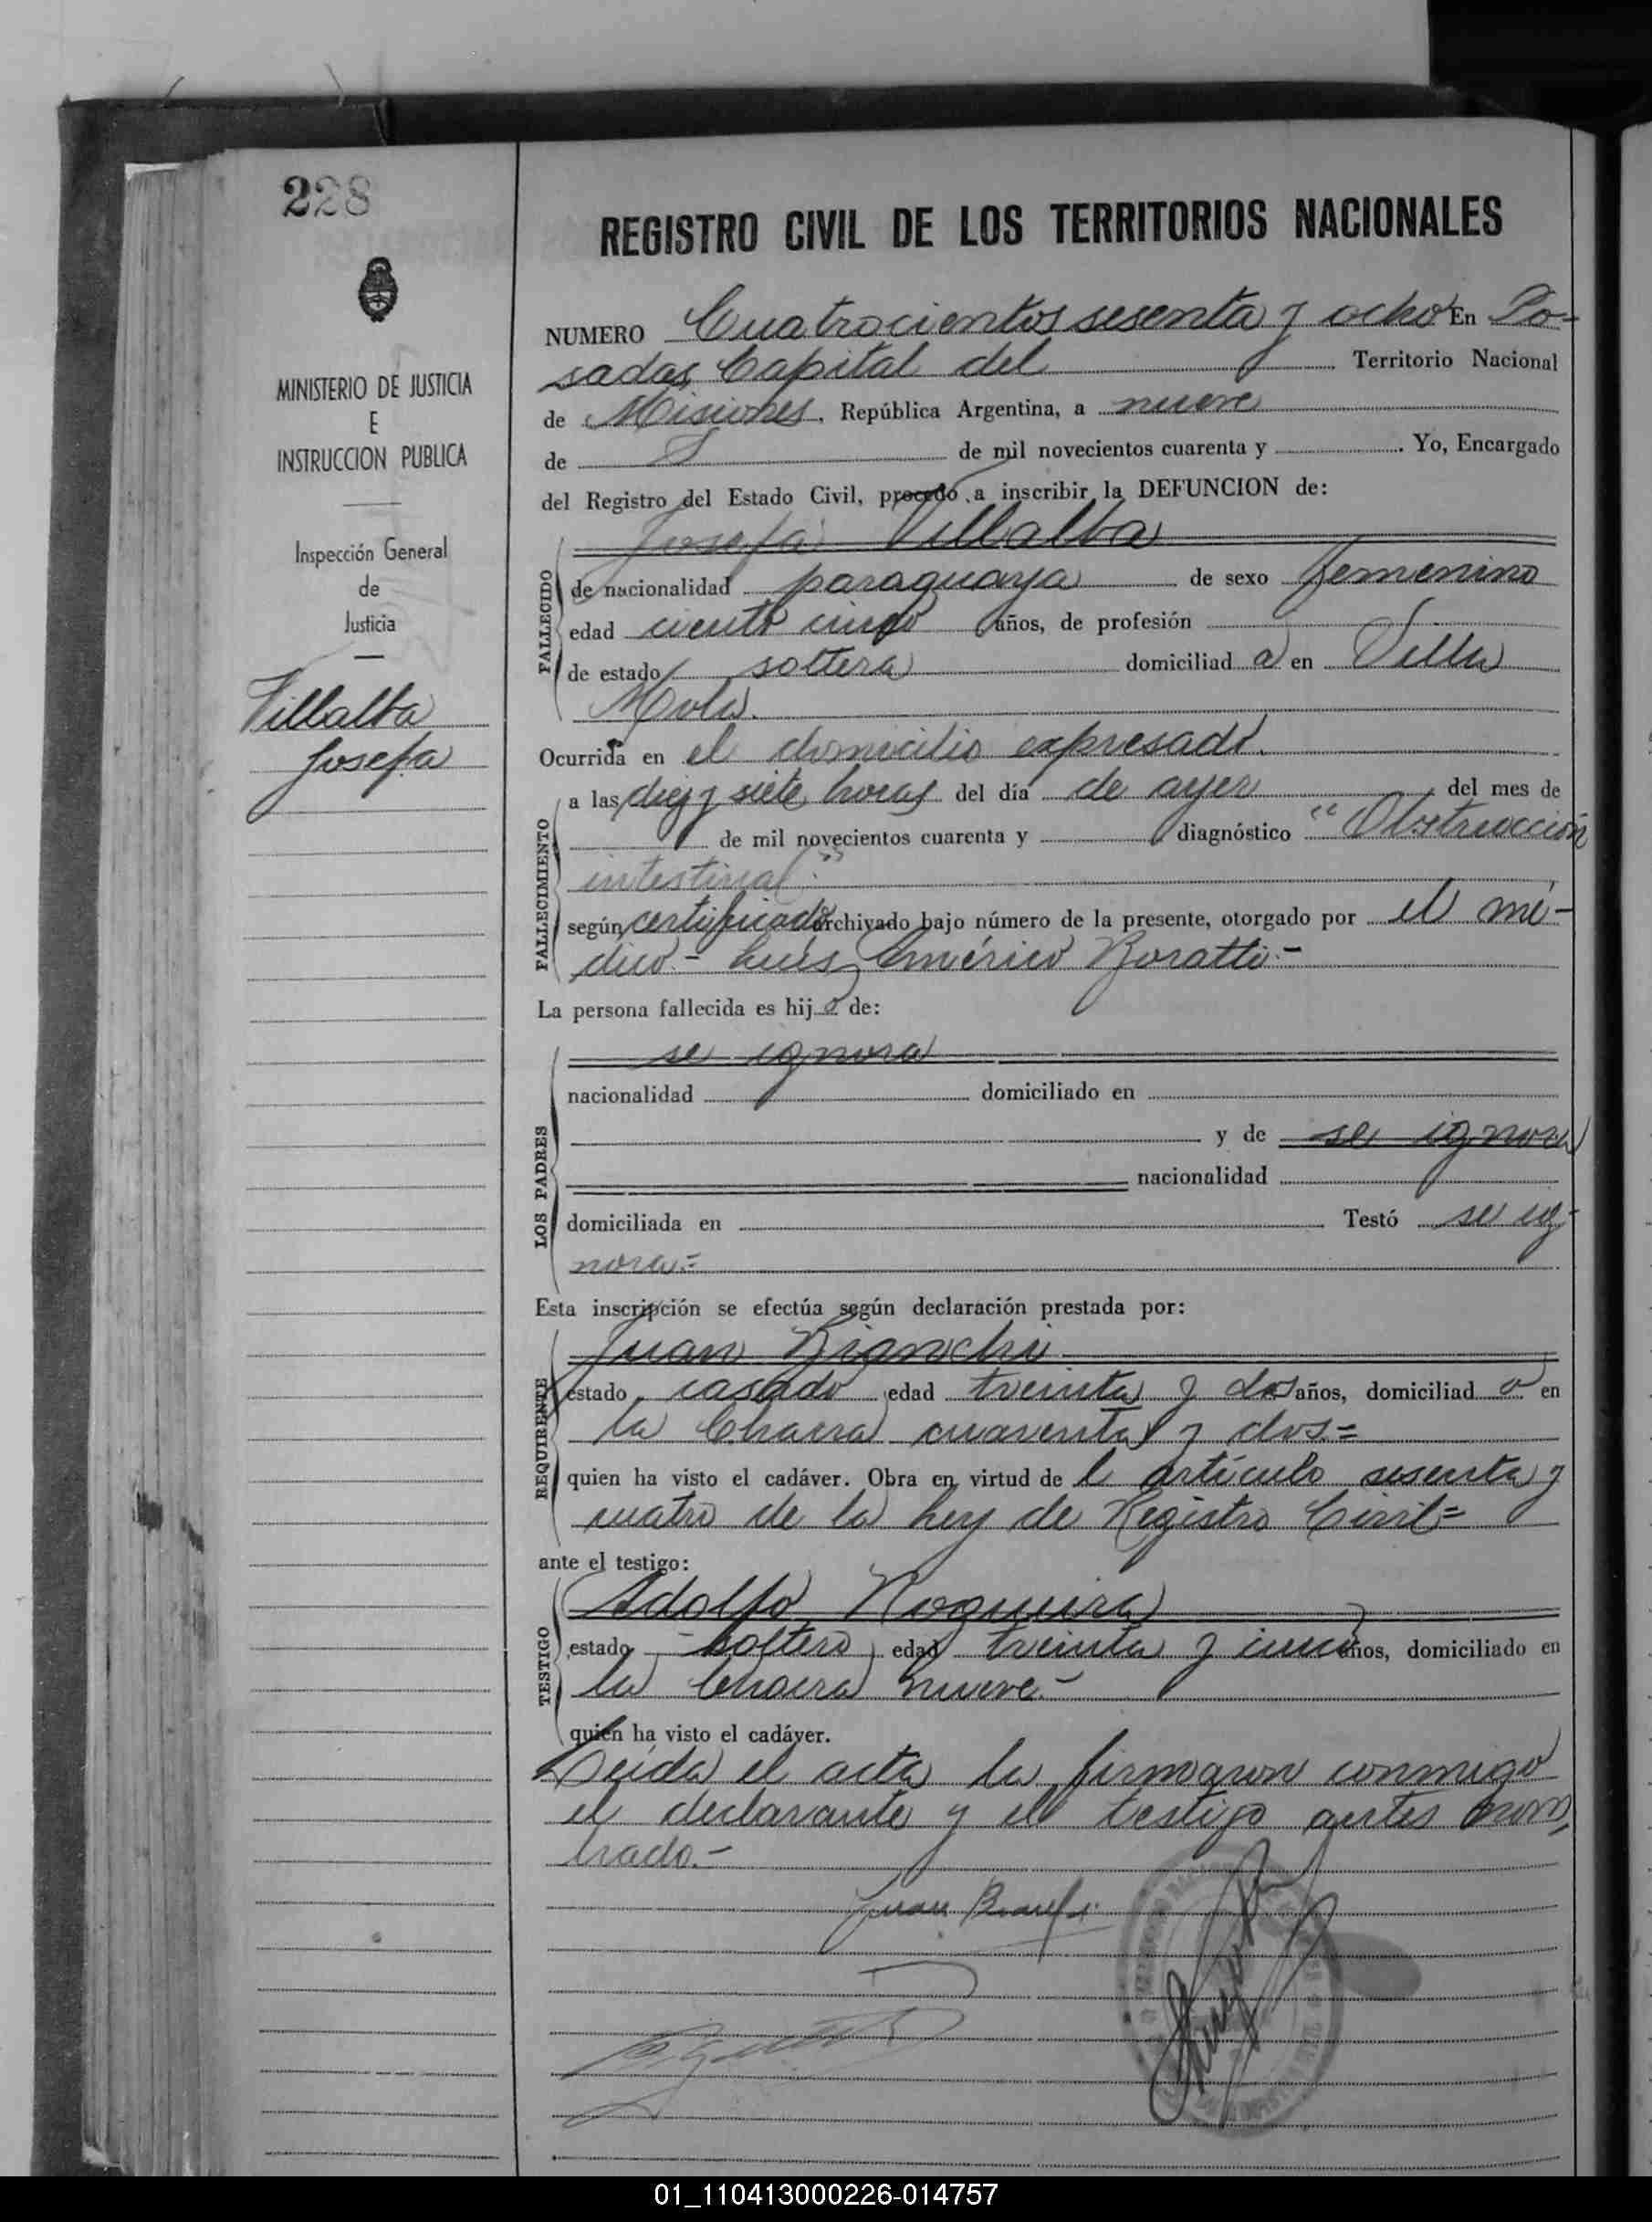 228
REGISTRO CIVIL DE LOS TERRITORIOS NACIONALES
MINISTERIO DE JUSTICIA
E
INSTRUCCION PUBLICA
Inspección General
de
Justicia
Villalba
Josefa
NUMERO Cuatrocientos sesenta y ocho En Po-
sadas Capital del Territorio Nacional
de Misiones, República Argentina, a nueve
de de mil novecientos cuarenta y Yo, Encargado
del Registro del Estado Civil, procedo a inscribir la DEFUNCION de:
Josefa Villalba
FALLECIDO
de nacionalidad paraguaya de sexo femenino
edad ciento cinco años, de profesión
de estado soltera domiciliad a en Villa
Mola.
Ocurrida en el domicilio expresado.
FALLECIMIENTO
a las diez y siete horas del día de ayer del mes de
de mil novecientos cuarenta y diagnóstico "Obstrucción
intestinal".
según certificado archivado bajo número de la presente, otorgado por el mé-
dico - Luis Américo Boratti.-
La persona fallecida es hij a de:
LOS PADRES
se ignora
nacionalidad domiciliado en
y de se ignora
nacionalidad
domiciliada en Testó se ig-
nora.=
Esta inscripción se efectúa según declaración prestada por:
REQUIRENTE
Juan Bianchi
estado casado edad treinta y dos años, domiciliad o en
la Chacra cuarenta y dos=
quien ha visto el cadáver. Obra en virtud de l artículo sesenta y
cuatro de la Ley de Registro Civil=
ante el testigo:
TESTIGO
Adolfo Nogueira
estado soltero edad treinta y cinco años, domiciliado en
la Chacra nueve.-
quien ha visto el cadáver.
Leída el acta la firmaron conmigo
el declarante y el testigo antes nom-
brado.-
Juan Bianchi
01_110413000226-014757